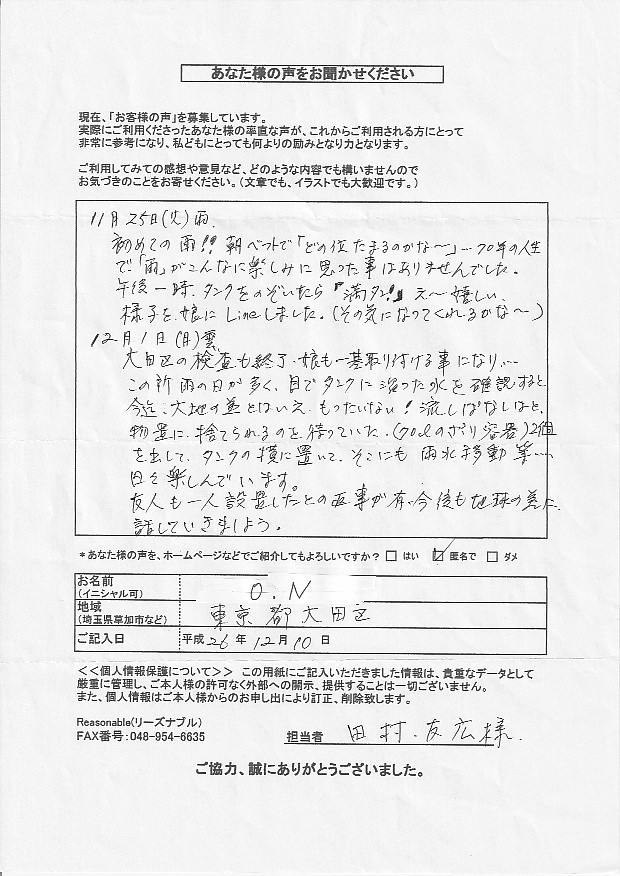 あなた様の声をお聞かせください
現在、「お客様の声」を募集しています。
実際にご利用くださったあなた様の率直な声が、これからご利用される方にとって
非常に参考になり、私どもにとっても何よりの励みとなり力となります。
ご利用してみての感想や意見など、どのような内容でも構いませんので
お気づきのことをお寄せください。(文章でも、イラストでも大歓迎です。)
11月25日(火)雨.
初めての雨!! 朝ベットで「どの位たまるのかな〜」…70年の人生
で「雨」がこんなに楽しみに思った事はありませんでした。
午後一時、タンクをのぞいたら『満タン!』え〜嬉しい、
様子を、娘にLineしました。(その気になってくれるかな〜)
12月1日(月)曇
大田区の検査も終了、娘も一基取り付ける事になり…
この所雨の日が多く、目でタンクに溜った水を確認すると
今迄、大地の為とはいえ、もったいない!流しぱなしはと、
物置に、捨てられるのを、待っていた、(70ℓのポリ容器)2個
を出して、タンクの横に置いて、そこにも雨水移動等…
日々楽しんでいます。
友人も一人設置したとの返事が有、今後も地球の為に、
話していきましょう。
*あなた様の声を、ホームページなどでご紹介してもよろしいですか? □はい ☑匿名で □ダメ
お名前
(イニシャル可) O.N
地域
(埼玉県草加市など) 東京都大田区
ご記入日 平成26年12月10日
<<個人情報保護について>> この用紙にご記入いただきました情報は、貴重なデータとして
厳重に管理し、ご本人様の許可なく外部への開示、提供することは一切ございません。
また、個人情報はご本人様からのお申し出により訂正、削除致します。
Reasonable(リーズナブル)
FAX番号:048-954-6635 担当者 田村.友広様.
ご協力、誠にありがとうございました。